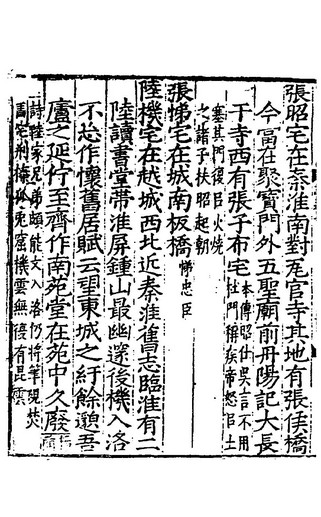 張昭宅在秦淮南對瓦官寺其地有張侯橋
今當在聚寶門外五聖廟前丹陽記大長
干寺西有張子布宅
本傳昭仕吳言不用
杜門稱疾帝怒㠯土
塞其門後㠯火燒
之諸子扶昭起朝
張悌宅在城南板橋
悌忠臣
陸機宅在越城西北近秦淮舊志臨淮有二
陸讀書堂帶淮屏鍾山最幽邃後機入洛
不忘作懷舊居賦云望東城之紆餘邈吾
廬之延佇至齊作南苑堂在苑中久廢
詩陸家兄弟頗能文入洛仍將筆硯焚
馬宅荊榛狐兔窟機雲無復有昆雲